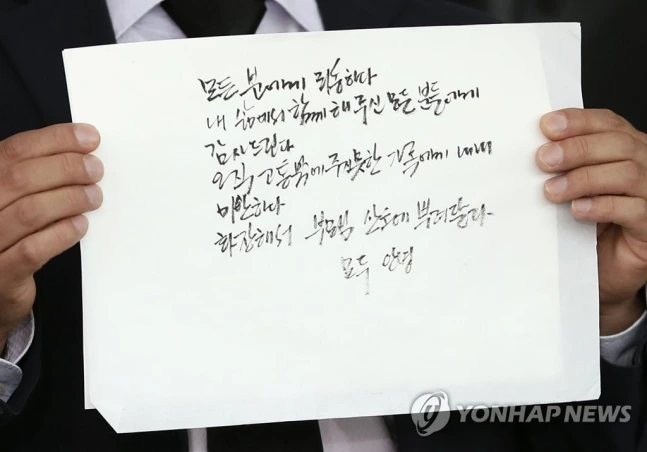 모든 분에게 죄송하다
내 삶에서 함께 해주신 모든 분들에게
감사드린다
오직 고통밖에 주지못한 가족에게 내내
미안하다
화장해서 부모님 산소에 뿌려달라
모두 안녕
YONHAP NEWS